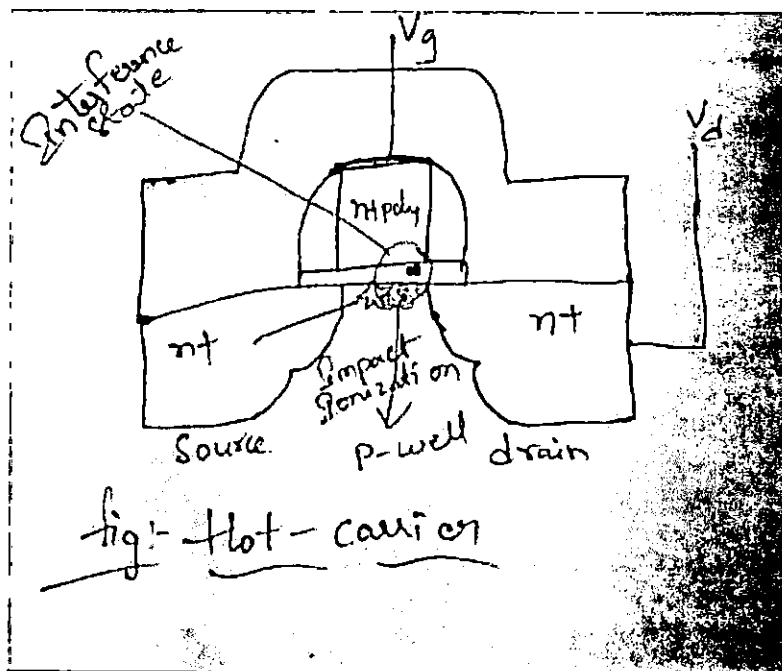 Vg
Interference
state
Vd
n+poly
n+
n+
Impact
Ionization
Source
P-well
drain
fig:- Hot-carrier